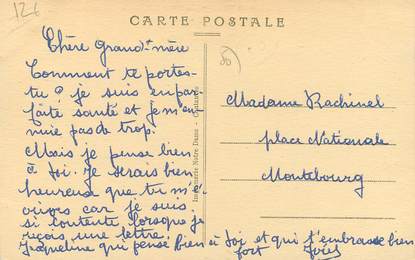 126
CARTE POSTALE
Chère Grand'mère
Comment te portes-
tu ? je suis en par-
faite santé et je m'en-
nuie pas de trop.
Mais je pense bien
à toi. Je serais bien
heureuse que tu m'é-
crives car je suis
si contente lorsque je
reçois une lettre.
Jacqueline qui pense bien à toi et qui t'embrasse bien
fort
Imprimerie Notre-Dame -
Madame Rachinel
place Nationale
Montebourg